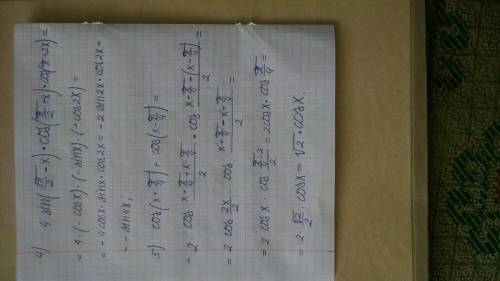 4) 4 sin(3π/2 - x) · cos(π/2 + x) · cos(π + 2x) =
= 4 · (-cosx) · (-sinx) · (-cos2x) =
= -4cosx · sinx · cos2x = -2 sin2x · cos2x =
= -sin4x;
5) cos(x + π/4) + cos(x - π/4) =
= 2 cos (x + π/4 + x - π/4)/2 · cos (x + π/4 - (x - π/4))/2 =
= 2 cos 2x/2 · cos (x + π/4 - x + π/4)/2 =
= 2 cosx · cos (π/4 · 2)/2 = 2cosx · cos π/4 =
= 2 · √2/2 · cosx = √2 · cosx.